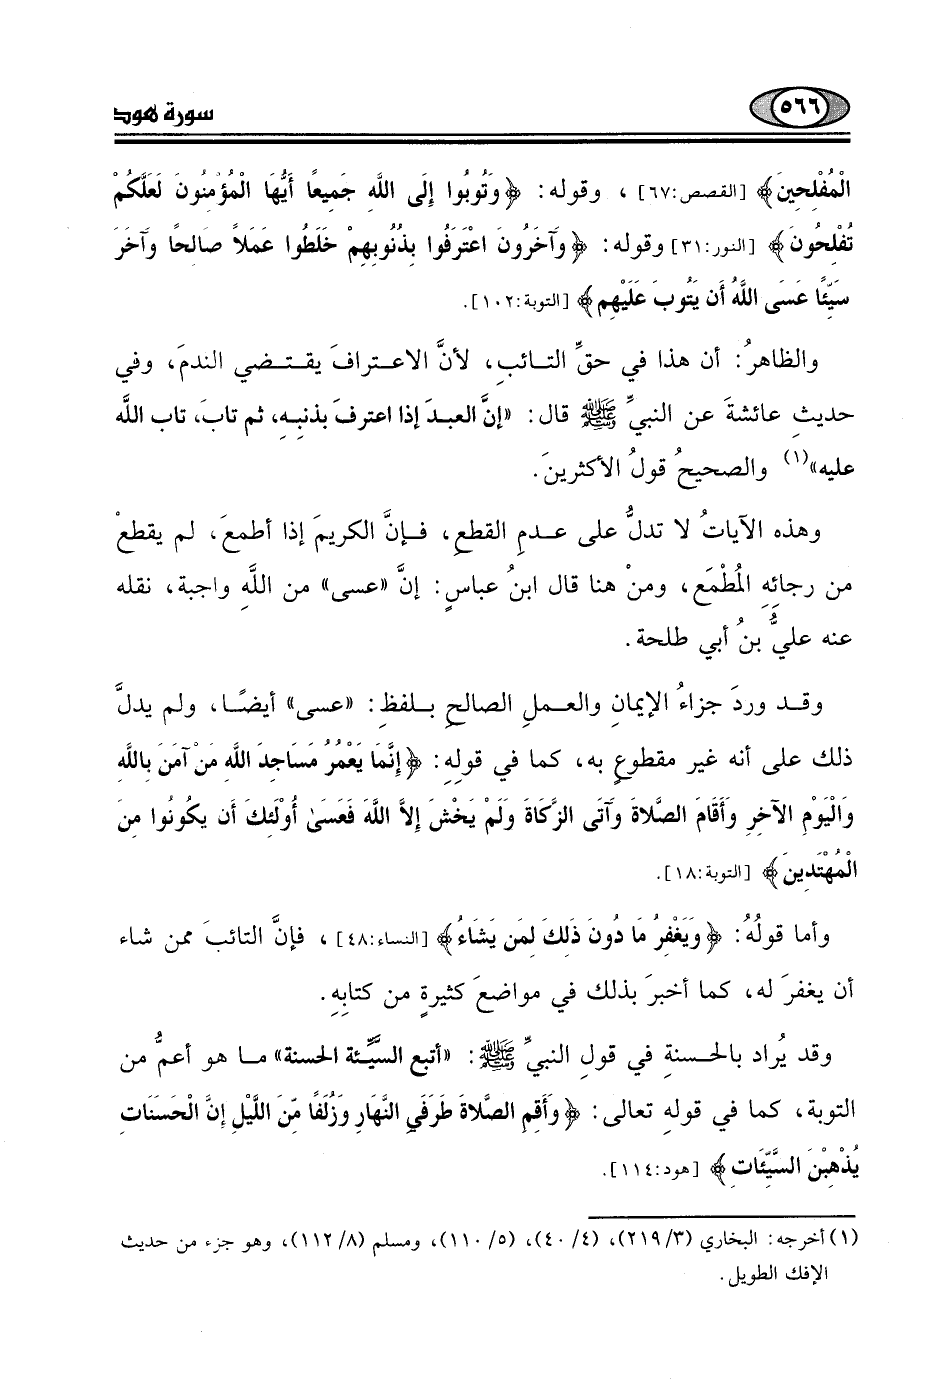 ٥٦٦ سورة هود
الْمُفْلِحِينَ﴾ [القصص:٦٧] ، وقوله: ﴿وَتُوبُوا إِلَى اللَّهِ جَمِيعًا أَيُّهَا الْمُؤْمِنُونَ لَعَلَّكُمْ
تُفْلِحُونَ﴾ [النور:٣١] وقوله: ﴿وَآخَرُونَ اعْتَرَفُوا بِذُنُوبِهِمْ خَلَطُوا عَمَلاً صَالِحًا وَآخَرَ
سَيِّئًا عَسَى اللَّهُ أَن يَتُوبَ عَلَيْهِم﴾ [التوبة:١٠٢].
والظاهرُ: أن هذا في حقِّ التائبِ، لأنَّ الاعترافَ يقتضي الندمَ، وفي
حديثِ عائشةَ عن النبيِّ ﷺ قال: «إنَّ العبدَ إذا اعترفَ بذنبِه، ثم تابَ، تاب اللَّه
عليه»(١) والصحيحُ قولُ الأكثرينَ.
وهذه الآياتُ لا تدلُّ على عدمِ القطعِ، فإنَّ الكريمَ إذا أطمعَ، لم يقطع
من رجائِهِ المُطْمَع، ومنْ هنا قال ابنُ عباسٍ: إنَّ «عسى» من اللَّهِ واجبة، نقله
عنه عليُّ بنُ أبي طلحة.
وقد وردَ جزاءُ الإيمانِ والعملِ الصالحِ بلفظِ: «عسى» أيضًا، ولم يدلَّ
ذلك على أنه غير مقطوعٍ به، كما في قولِهِ: ﴿إِنَّمَا يَعْمُرُ مَسَاجِدَ اللَّهِ مَنْ آمَنَ بِاللَّهِ
وَالْيَوْمِ الآخِرِ وَأَقَامَ الصَّلاةَ وَآتَى الزَّكَاةَ وَلَمْ يَخْشَ إِلاَّ اللَّهَ فَعَسَىٰ أُوْلَئِكَ أَن يَكُونُوا مِنَ
الْمُهْتَدِينَ﴾ [التوبة:١٨].
وأما قولُهُ: ﴿وَيَغْفِرُ مَا دُونَ ذَلِكَ لِمَن يَشَاءُ﴾ [النساء:٤٨] ، فإنَّ التائبَ ممن شاء
أن يغفرَ له، كما أخبرَ بذلك في مواضعَ كثيرةٍ من كتابِهِ.
وقد يُراد بالحسنةِ في قولِ النبيِّ ﷺ: «أتبع السَّيِّئة الحسنة» ما هو أعمُّ من
التوبة، كما في قولِهِ تعالى: ﴿وَأَقِمِ الصَّلاةَ طَرَفَيِ النَّهَارِ وَزُلَفًا مِّنَ اللَّيْلِ إِنَّ الْحَسَنَاتِ
يُذْهِبْنَ السَّيِّئَاتِ﴾ [هود:١١٤].
(١) أخرجه: البخاري (٣/ ٢١٩)، (٤/ ٤٠)، (٥/ ١١٠)، ومسلم (٨/ ١١٢)، وهو جزء من حديث
الإفك الطويل.